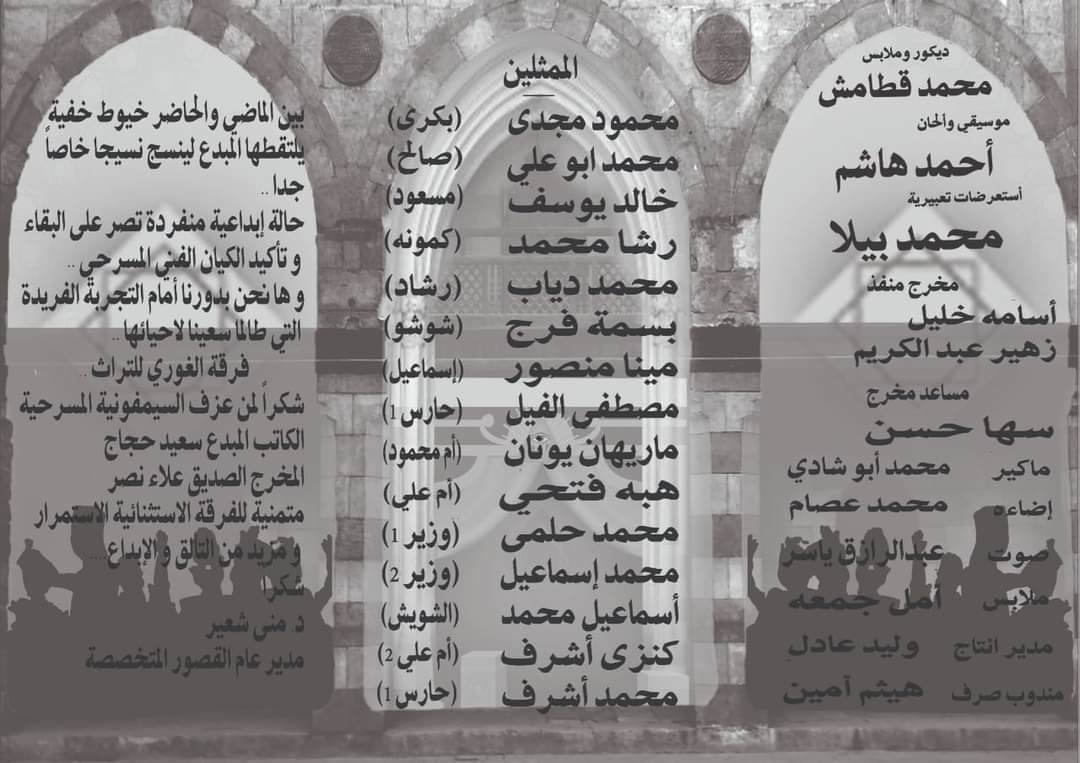 ديكور وملابس
محمد قطامش
موسيقي وألحان
أحمد هاشم
أستعرضات تعبيرية
محمد بيلا
مخرج منفذ
أسامه خليل
زهير عبد الكريم
مساعد مخرج
سها حسن
ماكير محمد أبو شادي
إضاءه محمد عصام
صوت عبدالرازق ياسر
ملابس أمل جمعه
مدير انتاج وليد عادل
مندوب صرف هيثم أمين
الممثلين
محمود مجدى (بكرى)
محمد ابو علي (صالح)
خالد يوسف (مسعود)
رشا محمد (كمونه)
محمد دياب (رشاد)
بسمة فرج (شوشو)
مينا منصور (إسماعيل)
مصطفى الفيل (حارس 1)
ماريهان يونان (أم محمود)
هبه فتحي (أم علي)
محمد حلمى (وزير 1)
محمد إسماعيل (وزير 2)
أسماعيل محمد (الشويش)
كنزى أشرف (أم علي 2)
محمد أشرف (حارس 1)
بين الماضي والحاضر خيوط خفية
يلتقطها المبدع لينسج نسيجا خاصاً
جدا ..
حالة إبداعية منفردة تصر على البقاء
و تأكيد الكيان الفني المسرحي ..
و ها نحن بدورنا أمام التجربة الفريدة
التي طالما سعينا لاحيائها ..
فرقة الغوري للتراث ..
شكراً لمن عزف السيمفونية المسرحية
الكاتب المبدع سعيد حجاج
المخرج الصديق علاء نصر
متمنية للفرقة الاستثنائية الاستمرار
و مزيد من التألق و الإبداع....
شكرا
د. منى شعير
مدير عام القصور المتخصصة